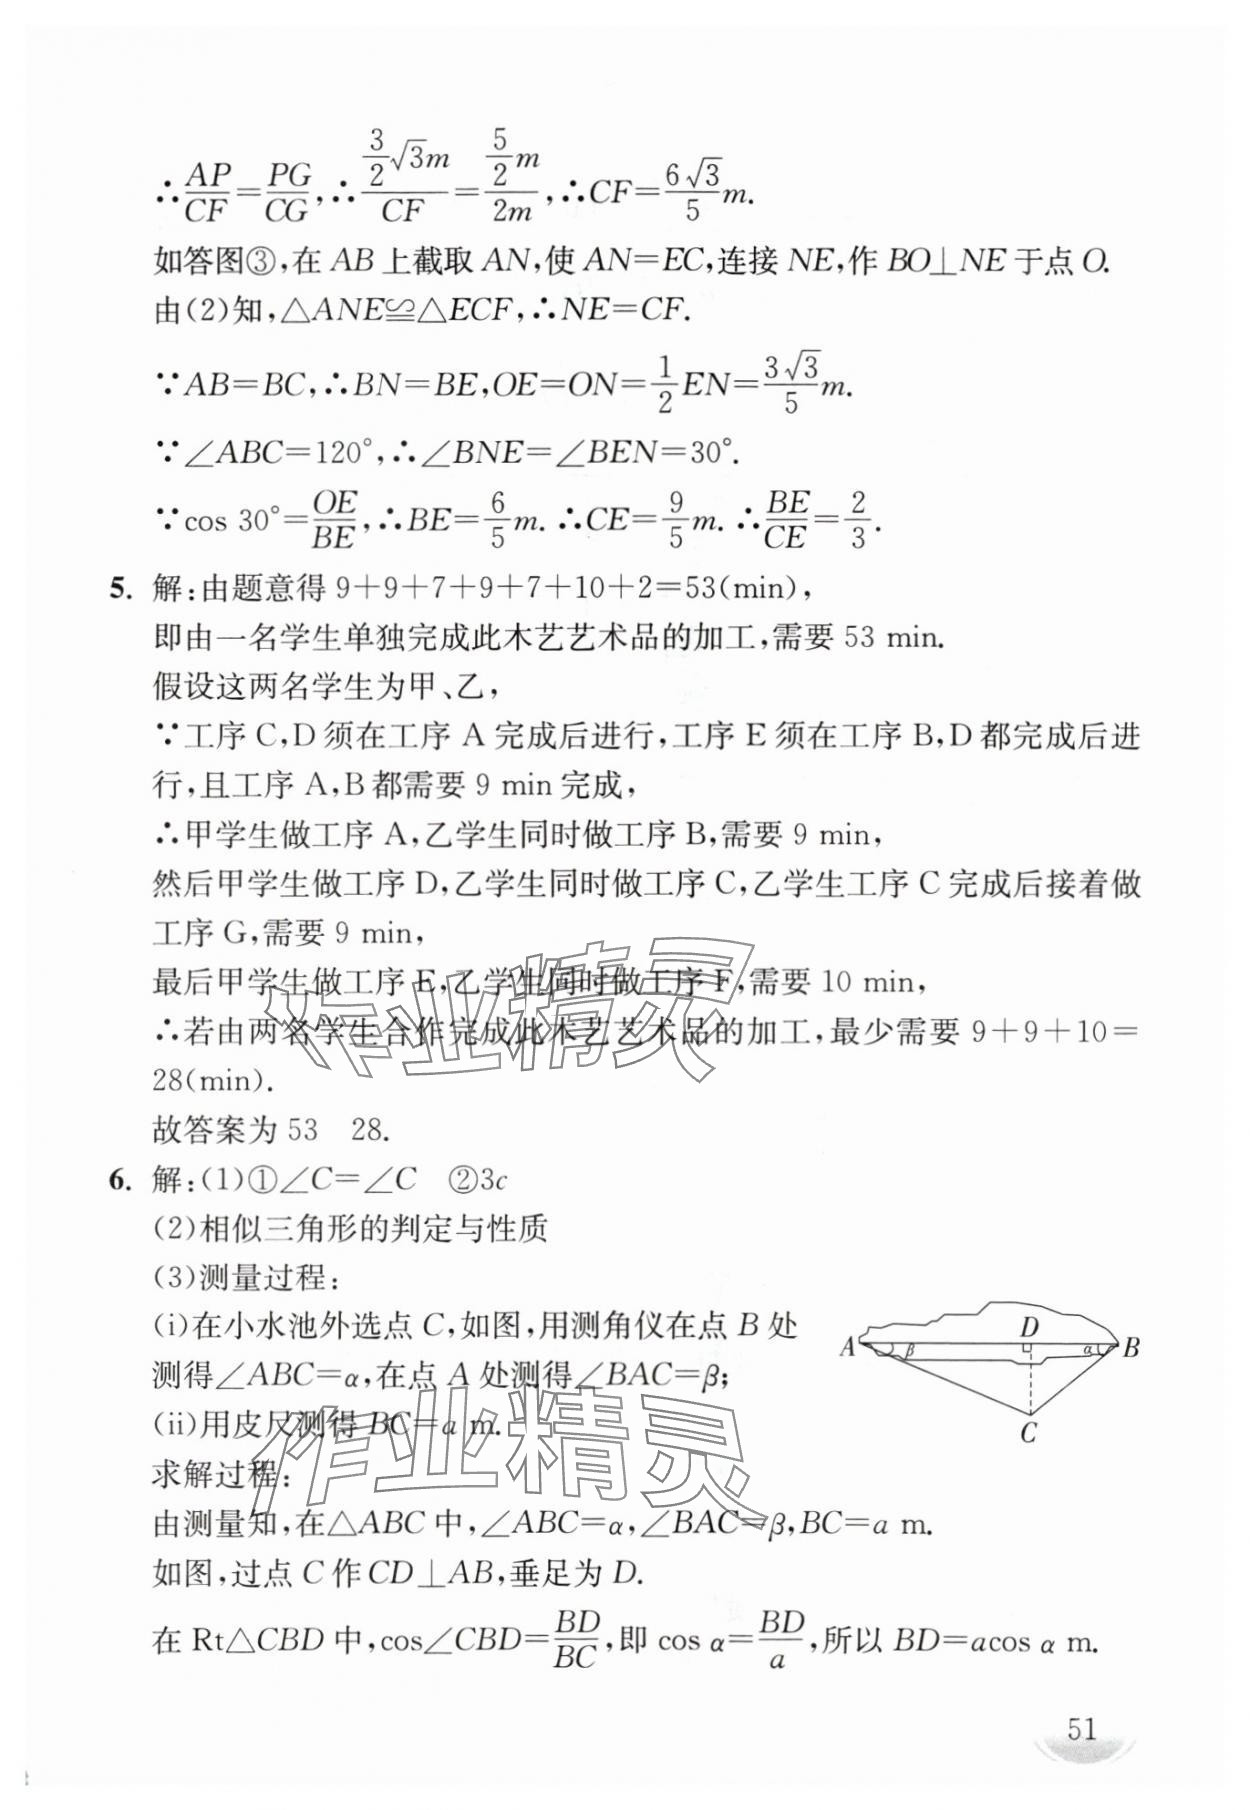 ∴AP/CF=PG/CG,∴(3/2)√3m/CF=(5/2)m/2m,∴CF=6√3/5 m.
如答图③,在 AB 上截取 AN,使 AN=EC,连接 NE,作 BO⊥NE 于点 O.
由(2)知,△ANE≌△ECF,∴NE=CF.
∵AB=BC,∴BN=BE,OE=ON=1/2 EN=3√3/5 m.
∵∠ABC=120°,∴∠BNE=∠BEN=30°.
∵cos 30°=OE/BE,∴BE=6/5 m. ∴CE=9/5 m. ∴BE/CE=2/3.
5. 解:由题意得 9+9+7+9+7+10+2=53(min),
即由一名学生单独完成此木艺艺术品的加工,需要 53 min.
假设这两名学生为甲、乙,
∵工序 C,D 须在工序 A 完成后进行,工序 E 须在工序 B,D 都完成后进
行,且工序 A,B 都需要 9 min 完成,
∴甲学生做工序 A,乙学生同时做工序 B,需要 9 min,
然后甲学生做工序 D,乙学生同时做工序 C,乙学生工序 C 完成后接着做
工序 G,需要 9 min,
最后甲学生做工序 E,乙学生同时做工序 F,需要 10 min,
∴若由两名学生合作完成此木艺艺术品的加工,最少需要 9+9+10=
28(min).
故答案为 53 28.
6. 解:(1)①∠C=∠C ②3c
(2)相似三角形的判定与性质
(3)测量过程:
(i)在小水池外选点 C,如图,用测角仪在点 B 处
测得∠ABC=α,在点 A 处测得∠BAC=β;
(ii)用皮尺测得 BC=a m.
A β D α B
C
求解过程:
由测量知,在△ABC 中,∠ABC=α,∠BAC=β,BC=a m.
如图,过点 C 作 CD⊥AB,垂足为 D.
在 Rt△CBD 中,cos∠CBD=BD/BC,即 cos α=BD/a,所以 BD=acos α m.
51
作业精灵
作业精灵